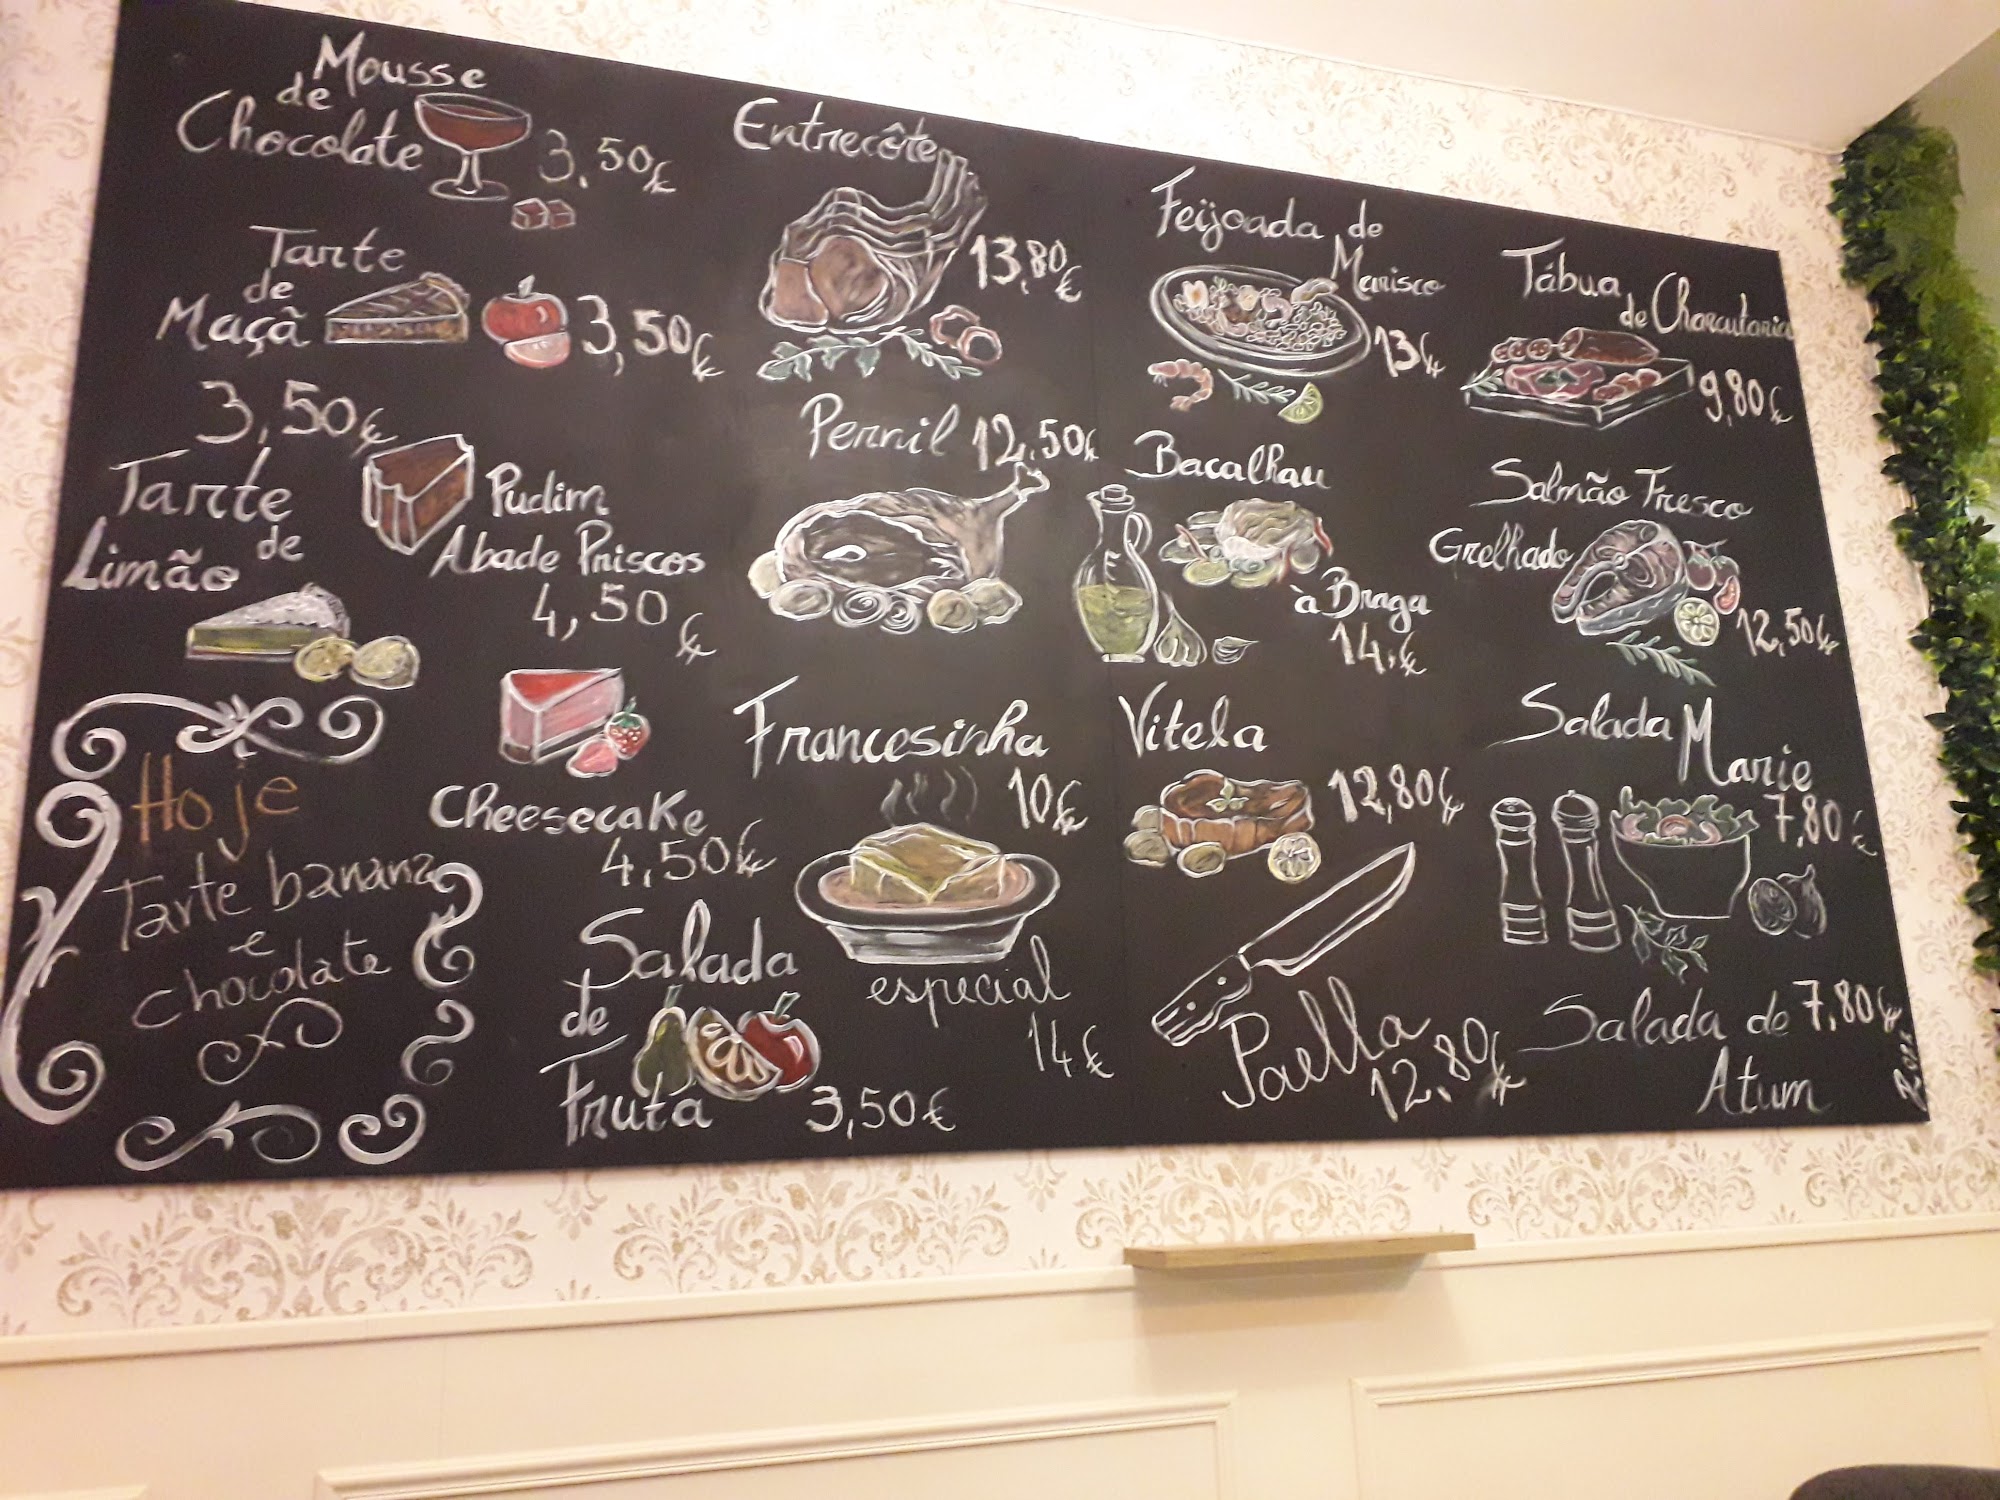 Mousse
de
Chocolate
3,50€
Tarte
de
Maçã
3,50€
3,50€
Tarte
de
Limão
Pudim
Abade Priscos
4,50
€
Cheesecake
4,50€
Hoje
Tarte banana
e
chocolate
Salada
de
Fruta
3,50€
Entrecôte
13,80€
Pernil 12,50€
Francesinha
10€
especial
14€
Feijoada de
Marisco
13€
Bacalhau
à Braga
14,€
Vitela
12,80€
Paella
12,80€
Tábua
de Charcutaria
9,80€
Salmão Fresco
Grelhado
12,50€
Salada
Marie
7,80€
Salada de 7,80€
Atum